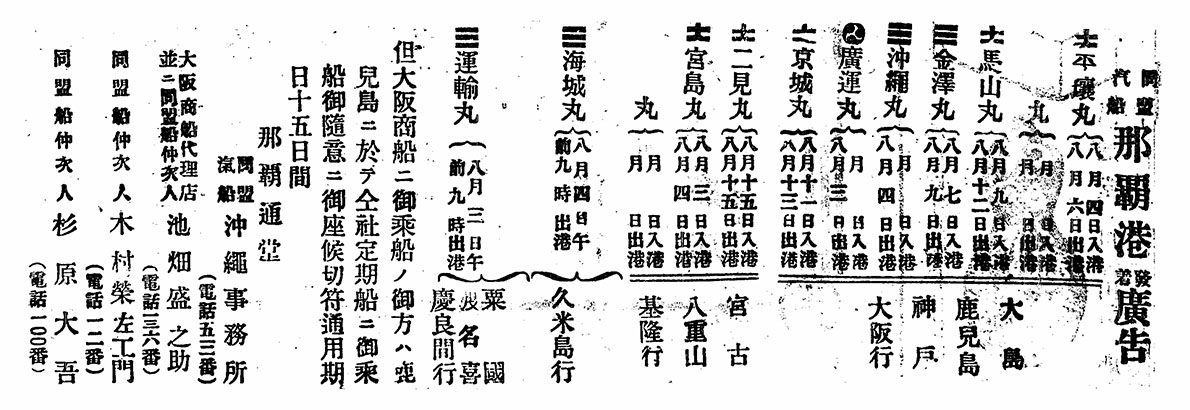 同盟汽船 那覇港發着廣告
平壤丸 八月四日入港 八月六日出港
丸 月 日入港 月 日出港
馬山丸 八月九日入港 八月十二日出港
金澤丸 八月七日入港 八月九日出港
沖繩丸 月 日入港 八月四日出港
廣運丸 月 日入港 八月三日出港
京城丸 八月十一日入港 八月十三日出港
大島
鹿兒島
神戸
大阪行
二見丸 八月十五日入港 八月十五日出港
宮島丸 八月三日入港 八月四日出港
丸 月 日入港 月 日出港
宮古
八重山
基隆行
海城丸 八月四日午前九時出港
久米島行
運輸丸 八月三日午前九時出港
粟國
渡名喜
慶良間行
但大阪商船ニ御乘船ノ御方ハ鹿
兒島ニ於テ仝社定期船ニ御乘
船御隨意ニ御座候切符通用期
日十五日間
那覇通堂
同盟汽船 沖繩事務所
(電話五二番)
大阪商船代理店
並ニ同盟船仲次人 池畑盛之助
(電話一三六番)
同盟船仲次人 木村榮左工門
(電話一二番)
同盟船仲次人 杉原大吾
(電話一〇〇番)